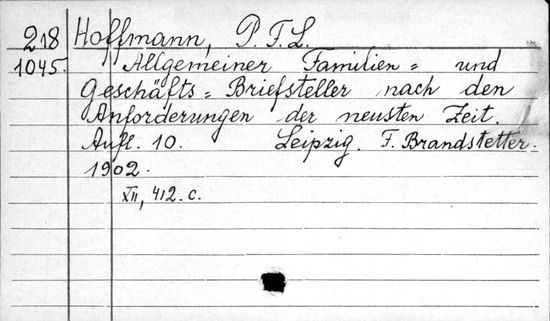 218 Hoffmann, P. F. L.
1045. Allgemeiner Familien= und
Geschäfts=Briefsteller nach den
Anforderungen der neusten Zeit.
Aufl. 10. Leipzig. F. Brandstetter.
1902.
XII, 412. c.